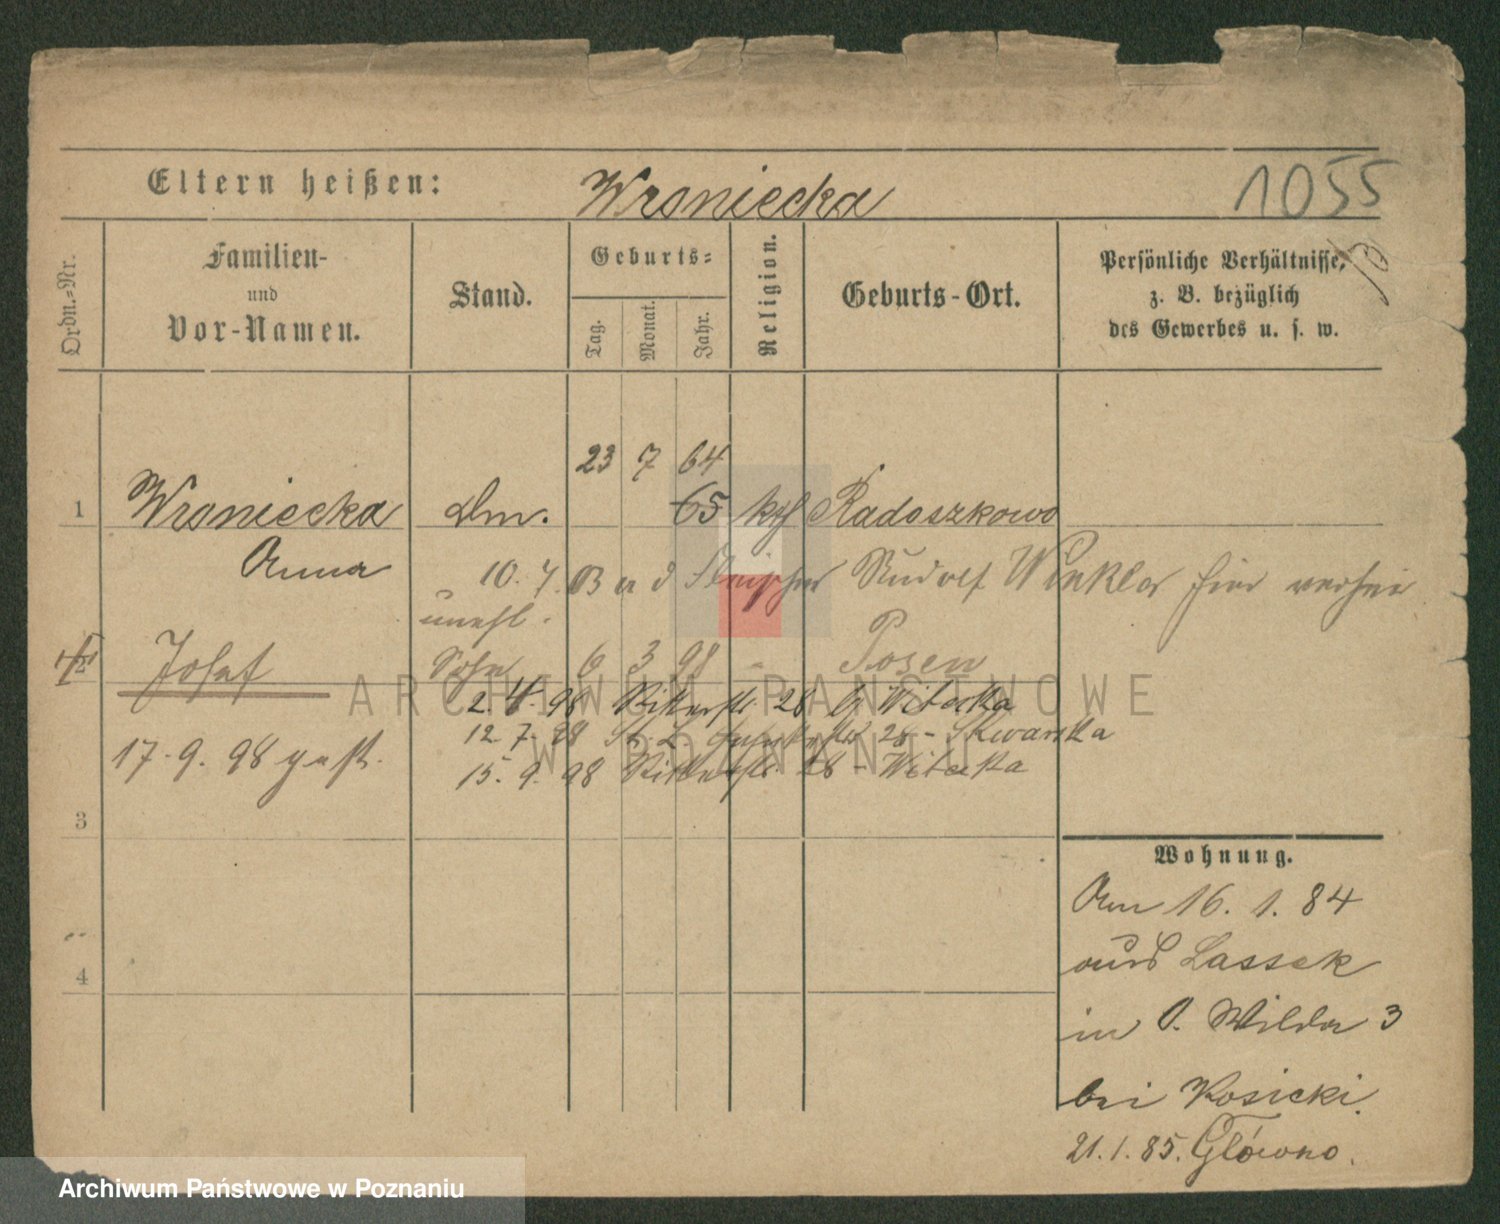 Eltern heißen: Wroniecka 1055
Ordn.-Nr.
Familien-
und
Vor-Namen.
Stand.
Geburts-
Tag.
Monat.
Jahr.
Religion.
Geburts-Ort.
Persönliche Verhältnisse,
z. B. bezüglich
des Gewerbes u. s. w.
23 7 64
1 Wroniecka Dm. 65 kth Radoszkowo
Anna 10. 7. Rudolf Winkler hier
unehl.
Josef Sohn 6 3 98 - Posen
2. 4. 98 Ritterstr. 28 b/ Witecka
17. 9. 98 gest. 12. 7. 98 28 - Skwarska
15. 9. 98 Ritterstr. 28 - Witecka
3
4
Wohnung.
Am 16. 1. 84
aus Lassek
in O. Wilda 3
bei Kosicki.
21. 1. 85. Główno.
ARCHIWUM PAŃSTWOWE
W POZNANIU
Archiwum Państwowe w Poznaniu